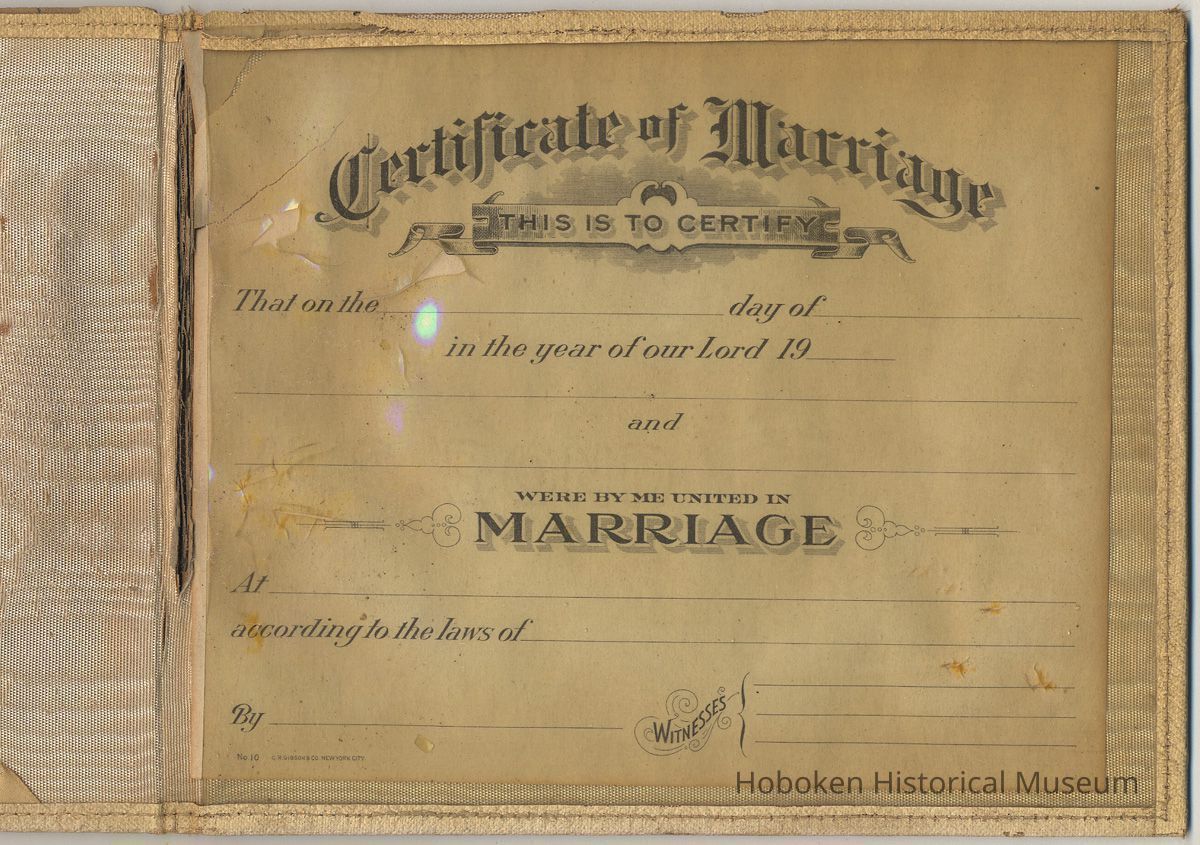 Certificate of Marriage
THIS IS TO CERTIFY
That on the day of
in the year of our Lord 19
and
WERE BY ME UNITED IN
MARRIAGE
At
according to the laws of
By WITNESSES
No 10 C.R. GIBSON & CO. NEW YORK CITY.
Hoboken Historical Museum